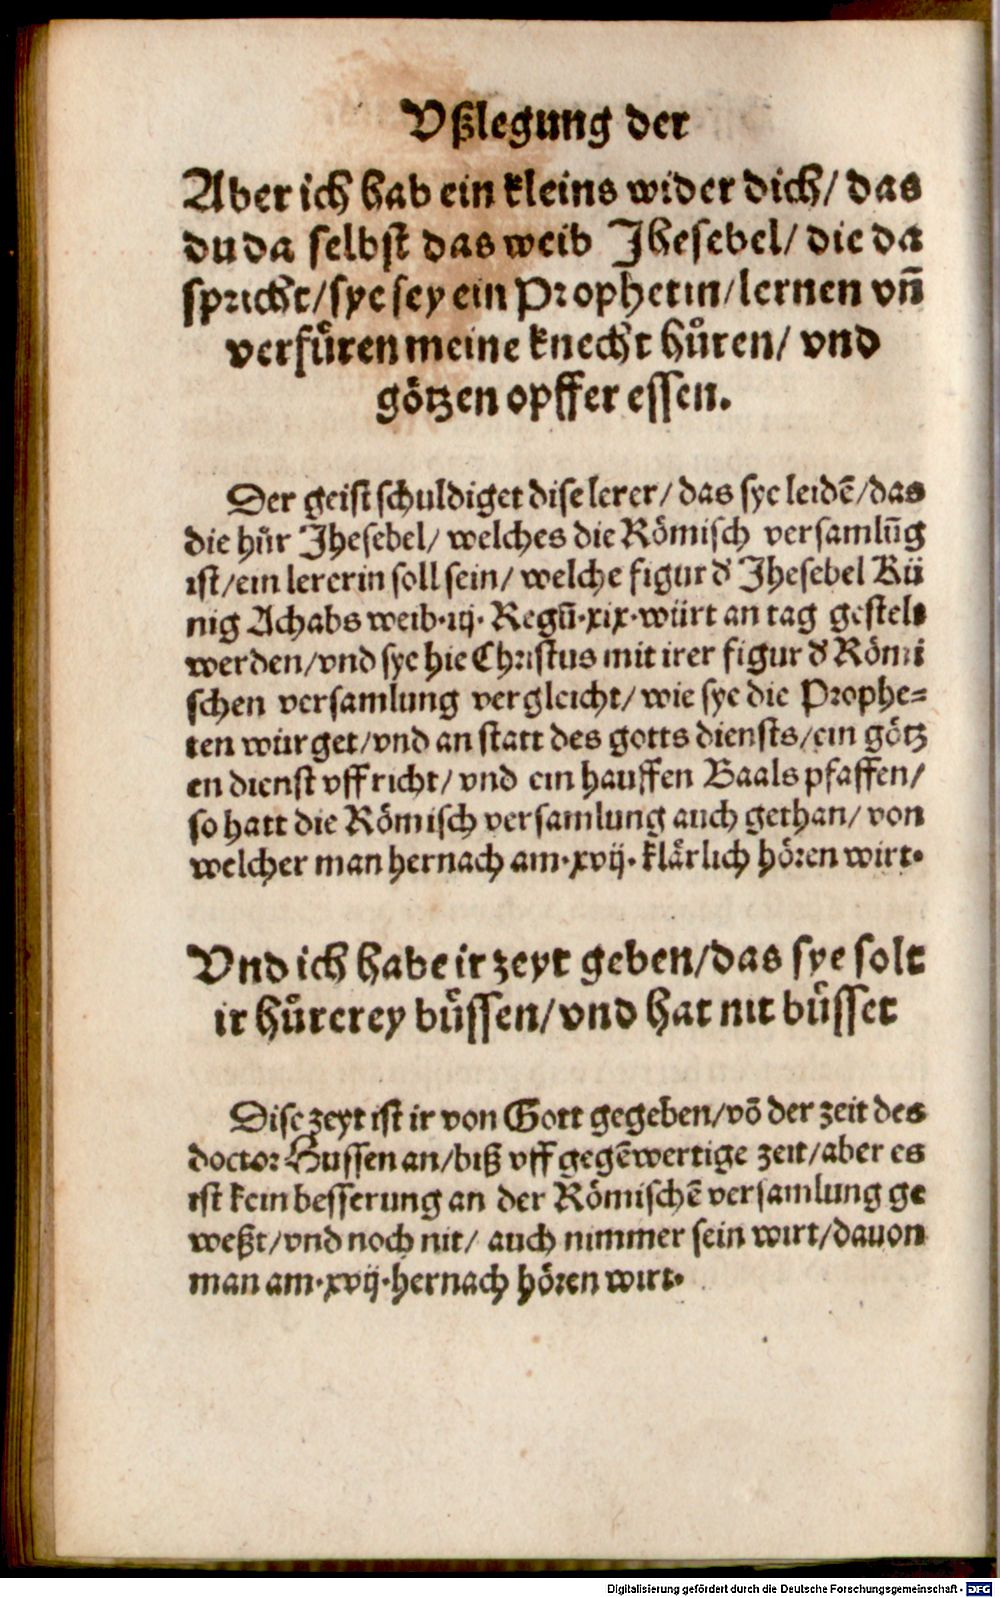 Vßlegung der
Aber ich hab ein kleins wider dich/ das
du da selbst das weib Jhesebel/ die da
spricht/ sye sey ein Prophetin/ lernen vñ
verfüren meine knecht hůren/ vnd
götzen opffer essen.
Der geist schuldiget dise lerer/ das sye leidē/ das
die hůr Jhesebel/ welches die Römisch versamlūg
ist/ ein lererin soll sein/ welche figur d' Jhesebel Kü
nig Achabs weib·iij· Regū·xix·würt an tag gestelt
werden/ vnd sye hie Christus mit irer figur d' Römi
schen versamlung vergleicht/ wie sye die Prophe=
ten würget/ vnd an statt des gotts diensts/ ein götz
en dienst vffricht/ vnd ein hauffen Baals pfaffen/
so hatt die Römisch versamlung auch gethan/ von
welcher man hernach am·xvij·klärlich hören wirt·
Vnd ich habe ir zeyt geben/ das sye solt
ir hůrerey büssen/ vnd hat nit büsset
Dise zeyt ist ir von Gott gegeben/ vō der zeit des
doctor Hussen an/ biß vff gegēwertige zeit/ aber es
ist kein besserung an der Römischē versamlung ge
weßt/ vnd noch nit/ auch nimmer sein wirt/ dauon
man am·xvij·hernach hören wirt·
Digitalisierung gefördert durch die Deutsche Forschungsgemeinschaft - DFG